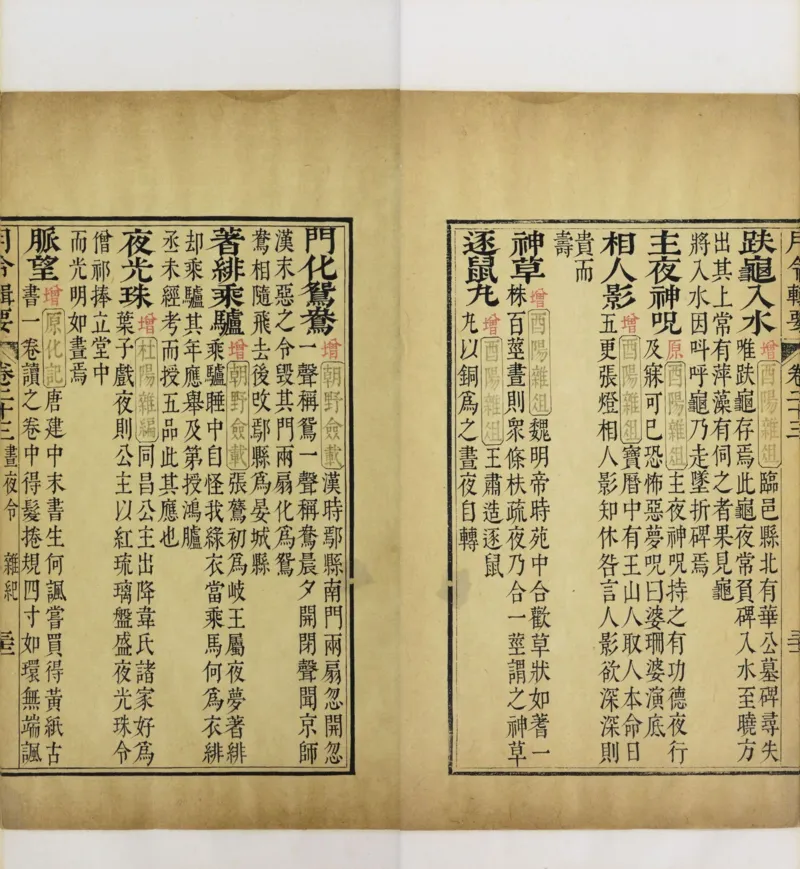 月令輯要 卷二十三
趺龜入水 增 酉陽雜俎 臨邑縣北有華公墓碑尋失
唯趺龜存焉此龜夜常負碑入水至曉方
出其上常有萍藻有伺之者果見龜
將入水因叫呼龜乃走墜折碑焉
主夜神咒 原 酉陽雜俎 主夜神咒持之有功德夜行
及寐可已恐怖惡夢咒曰婆珊婆演底
相人影 增 酉陽雜俎 寶曆中有王山人取人本命日
五更張燈相人影知休咎言人影欲深深則
貴而
壽
神草 增 酉陽雜俎 魏明帝時苑中合歡草狀如蓍一
株百莖晝則衆條扶疏夜乃合一莖謂之神草
逐鼠丸 增 酉陽雜俎 王肅造逐鼠
丸以銅爲之晝夜自轉
門化鴛鴦 增 朝野僉載 漢時鄢縣南門兩扇忽開忽
一聲稱鴛一聲稱鴦晨夕開閉聲聞京師
漢末惡之令毀其門兩扇化爲鴛
鴦相隨飛去後改鄢縣爲晏城縣
著緋乘驢 增 朝野僉載 張鷟初爲岐王屬夜夢著緋
乘驢睡中自怪我綠衣當乘馬何爲衣緋
却乘驢其年應舉及第授鴻臚
丞未經考而授五品此其應也
夜光珠 增 杜陽雜編 同昌公主出降韋氏諸家好爲
葉子戲夜則公主以紅琉璃盤盛夜光珠令
僧祁捧立堂中
而光明如晝焉
脈望 增 原化記 唐建中末書生何諷嘗買得黃紙古
書一卷讀之卷中得髮捲規四寸如環無端諷
月令輯要 卷二十三 晝夜令 雜紀